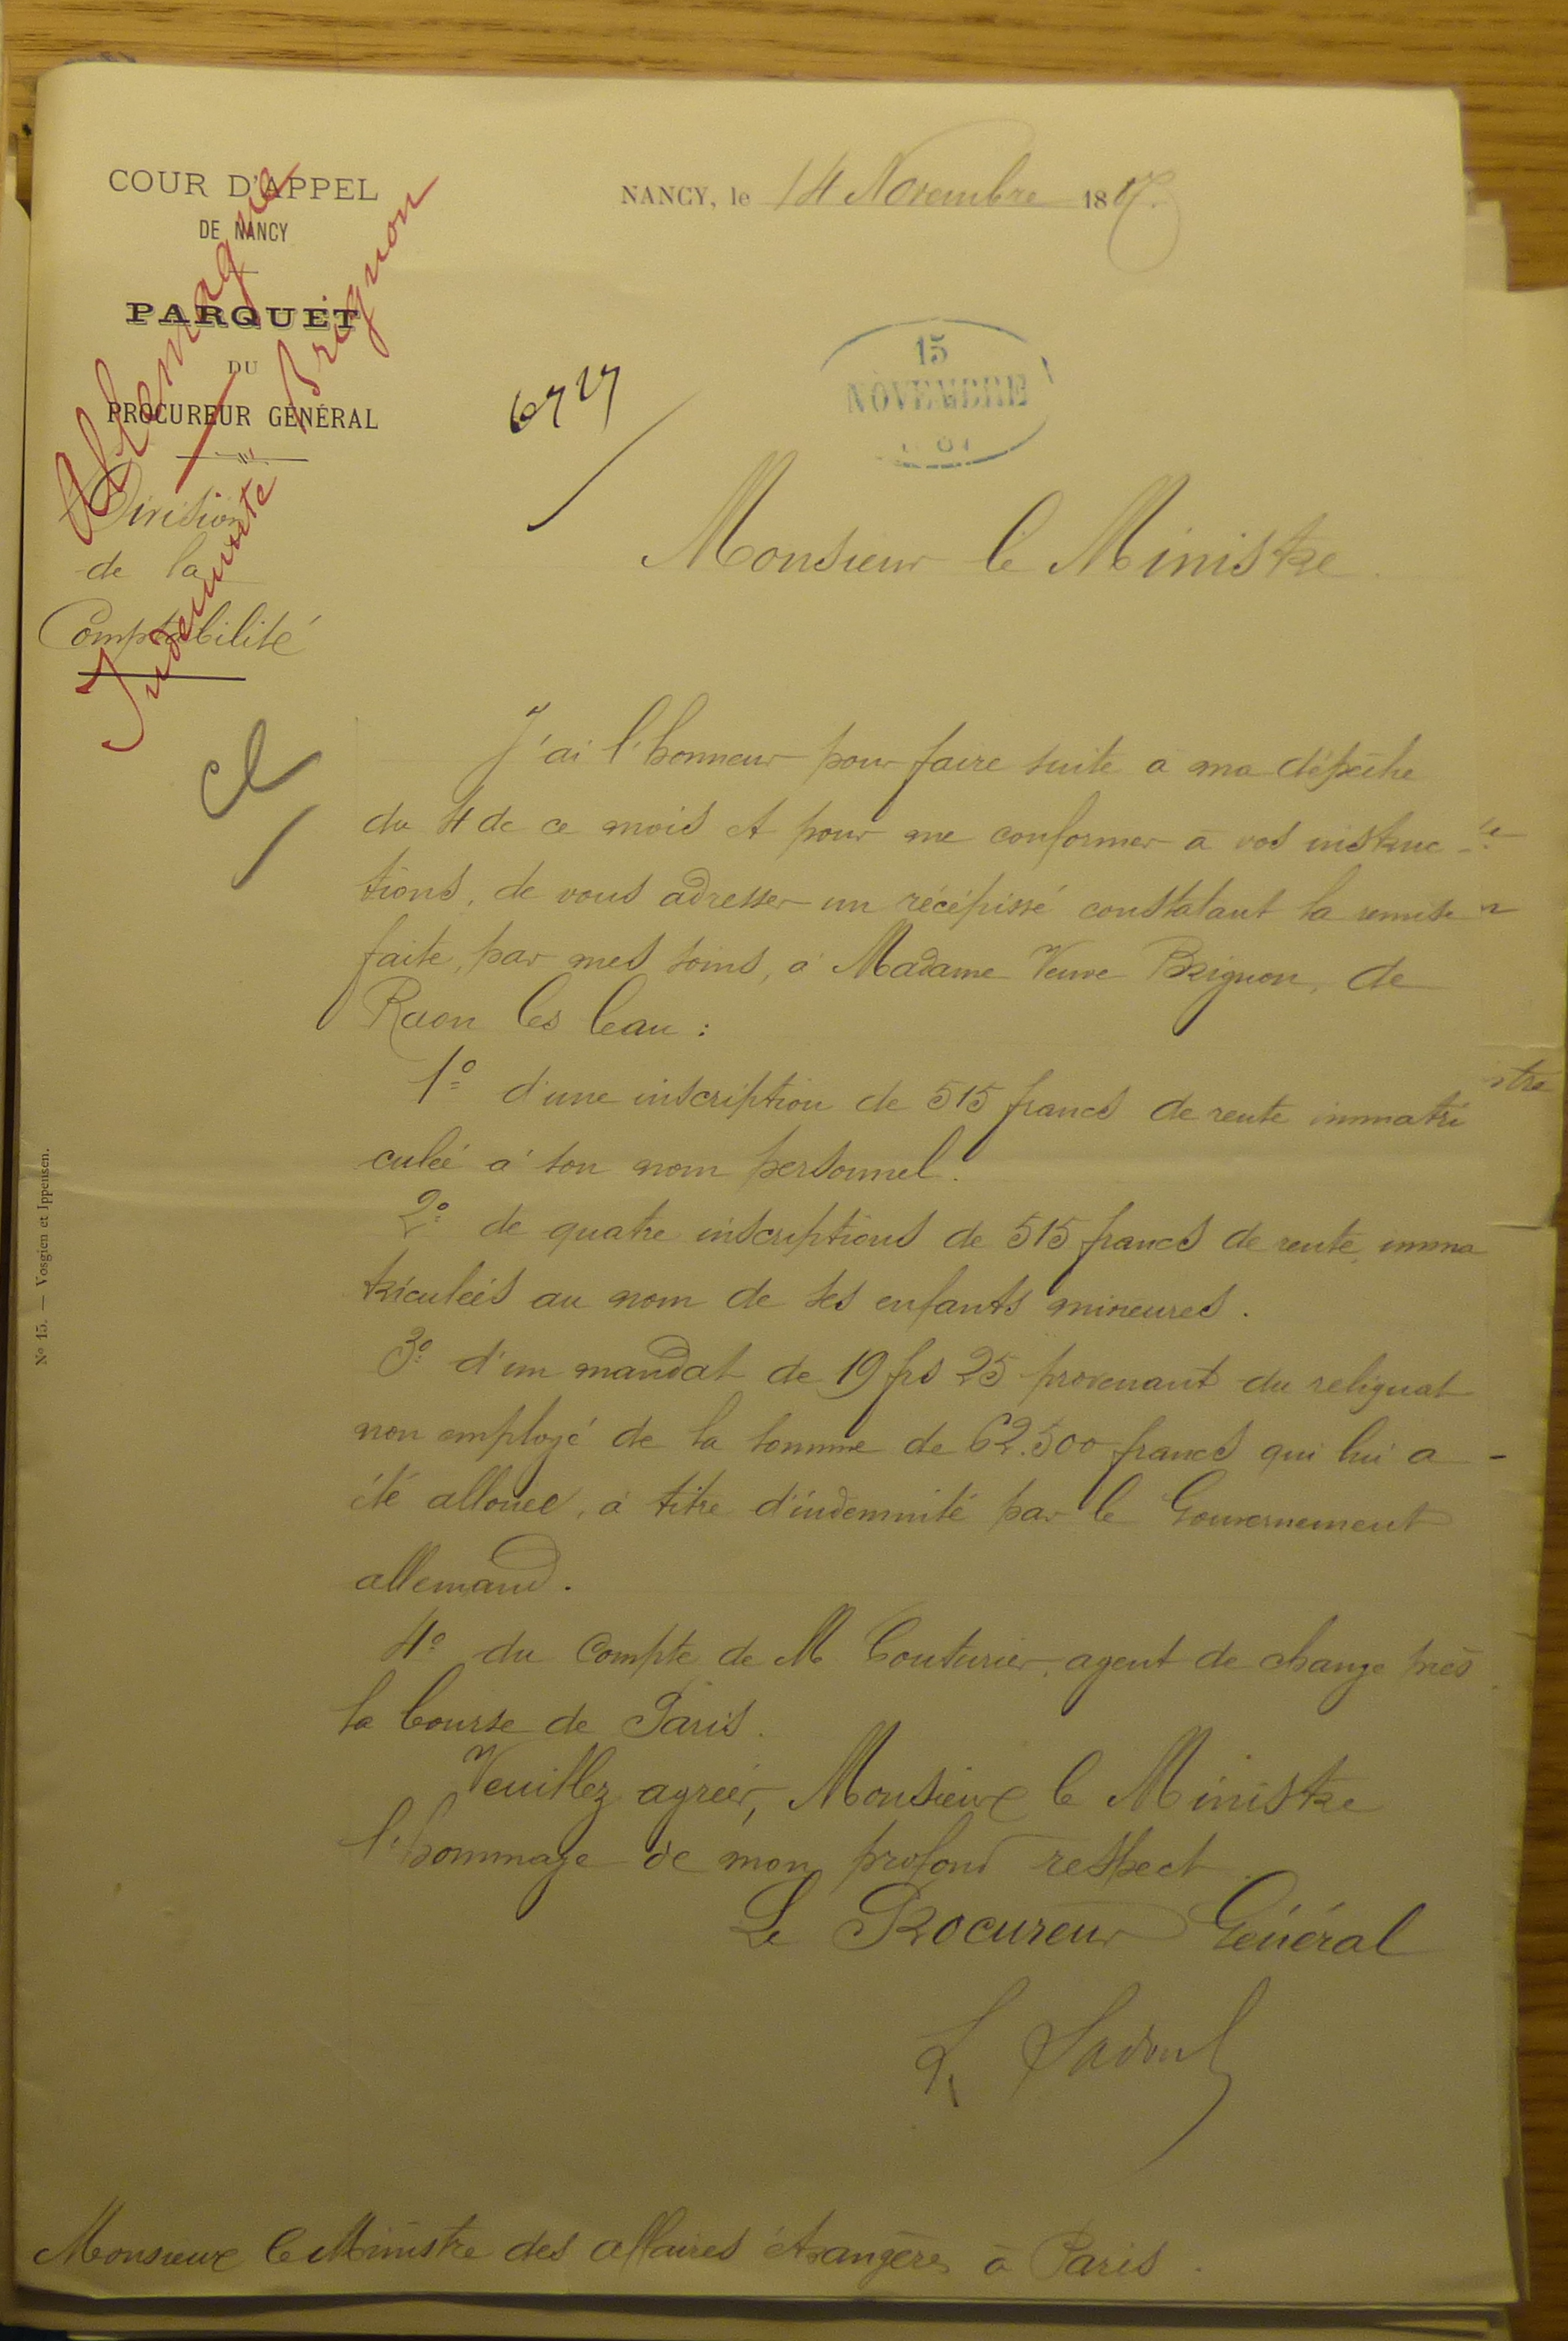 COUR D'APPEL
DE NANCY
PARQUET
DU
PROCUREUR GÉNÉRAL
Division
de la
Comptabilité
Allemagne
Indemnité Brignon
NANCY, le 14 Novembre 1887.
6727
15
NOVEMBRE
Monsieur le Ministre
J'ai l'honneur pour faire suite à ma dépêche
du 4 de ce mois et pour me conformer à vos instruc
tions, de vous adresser un récépissé constatant la remise
faite, par mes soins, à Madame Veuve Brignon, de
Raon les leau :
1º d'une inscription de 515 francs de rente immatri
culée à son nom personnel.
2º de quatre inscriptions de 515 francs de rente, imma
triculées au nom de ses enfants mineures.
3º d'un mandat de 19 frs 25 provenant du reliquat
non employé de la somme de 62.500 francs qui lui a
été allouée, à titre d'indemnité par le Gouvernement
allemand.
4º du compte de M Couturier, agent de change près
la bourse de Paris.
Veuillez agréer, Monsieur le Ministre
l'hommage de mon profond respect.
Le Procureur Général
L. Sadoul
Monsieur le Ministre des affaires étrangères à Paris.
Nº 15. — Vosgien et Ippensen.